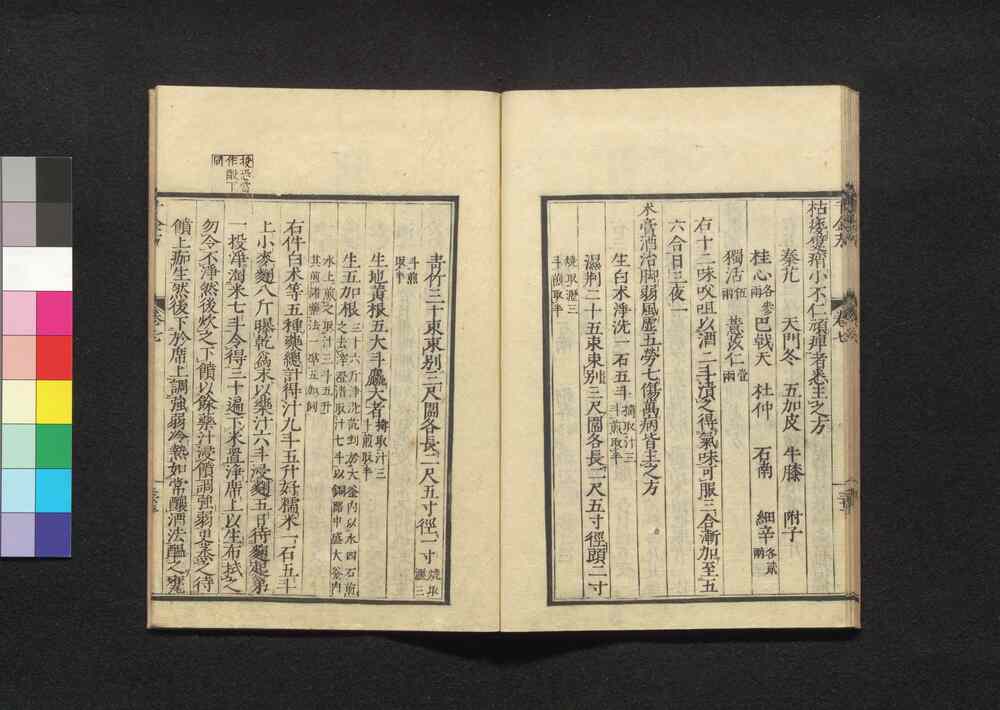 枯痿躄痟小不仁頑痺者悉主之方
秦艽 天門冬 五加皮 牛膝 附子
桂心各叁兩 巴戟天 杜仲 石南 細辛各貳兩
獨活伍兩 薏苡仁壹兩
右十二味㕮咀以酒二斗漬之得氣味可服三合漸加至五
六合日三夜一
术膏酒治脚弱風虛五勞七傷萬病皆主之方
生白术淨洗一石五斗擣取汁三斗煎取半
濕荆二十五束束別三尺圍各長二尺五寸徑頭二寸
燒取瀝三斗煎取半
青竹三十束束別三尺圍各長二尺五寸徑一寸燒取瀝三
斗煎取半
生地黃根五大斗麤大者擣取汁三斗煎取半
生五加根三十六斤淨洗剉於大釜內以水四石煎之去滓澄清取汁七斗以銅器中盛大釜內
水上煎之取汁三斗五升其煎諸藥法一準五加例
右件白术等五種藥總計得汁九斗五升好糯米一石五斗
上小麥麴八斤曝乾為末以藥汁六斗浸麴五日待麴起第
一投淨淘米七斗令得三十遍下米置淨席上以生布拭之
勿令不淨然後炊之下饋以餘藥汁浸饋調強弱更蒸之待
饋上痂生然後下於席上調強弱冷熱如常釀酒法醞之甕